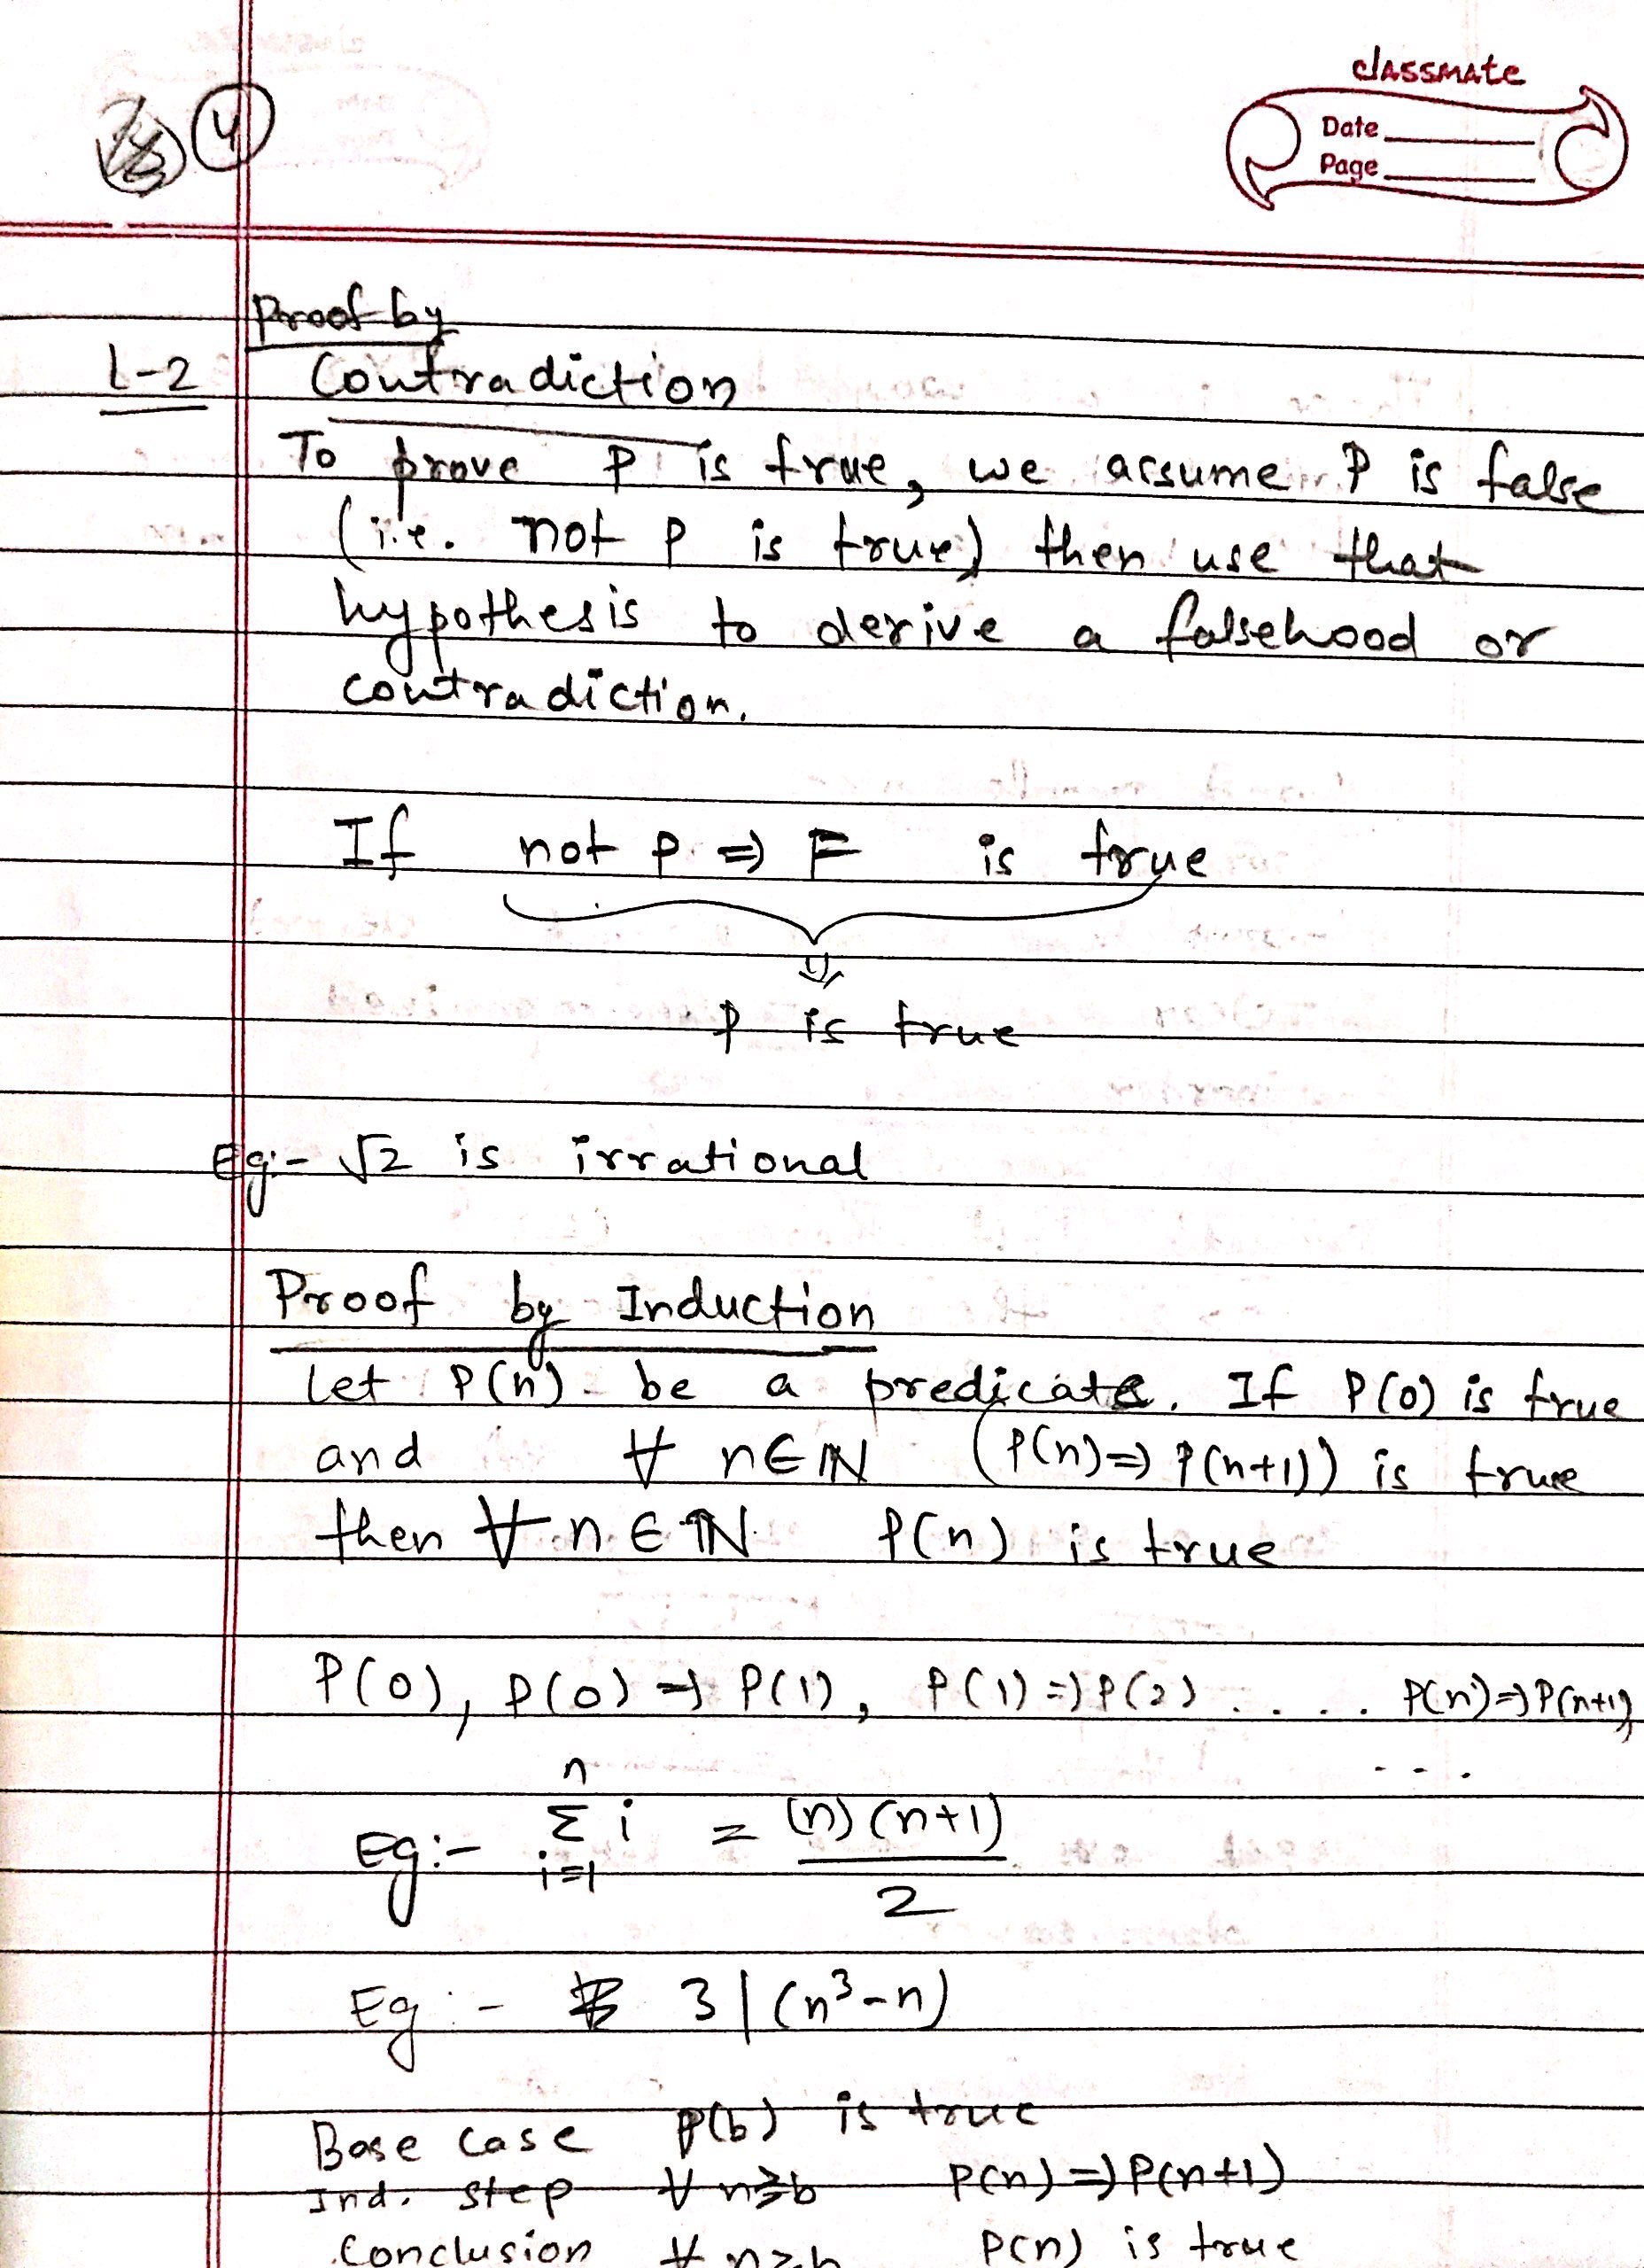 classmate
Date
Page
4
Proof by
L-2 Contradiction
To prove P is true, we assume P is false
(i.e. not P is true) then use that
hypothesis to derive a falsehood or
contradiction.
If not P ⇒ F is true
⇓
P is true
Eg:- √2 is irrational
Proof by Induction
Let P(n) be a predicate. If P(0) is true
and ∀ n∈ℕ (P(n)⇒ P(n+1)) is true
then ∀ n∈ℕ P(n) is true
P(0), P(0) ⇒ P(1), P(1) ⇒ P(2) .... P(n)⇒P(n+1)
...
n
Eg:- Σ i = (n)(n+1)
i=1 2
Eg:- 3 | (n³-n)
Base case P(b) is true
Ind. step ∀ n≥b P(n) ⇒ P(n+1)
Conclusion ∀ n≥b P(n) is true